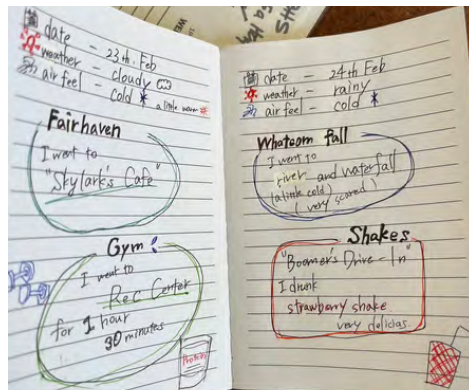 date - 23th Feb
weather - cloudy
air feel - cold
a little warm
Fairhaven
I went to
"Skylark's Cafe"
Gym
I went to
Rec Center
for 1 hour
30 minutes
Protein
date - 24th Feb
weather - rainy
air feel - cold
Whatcom fall
I went to
river and waterfall
(a little cold)
(very scared)
Shakes
"Boomer's Drive-In"
I drunk
strawberry shake
very delicias